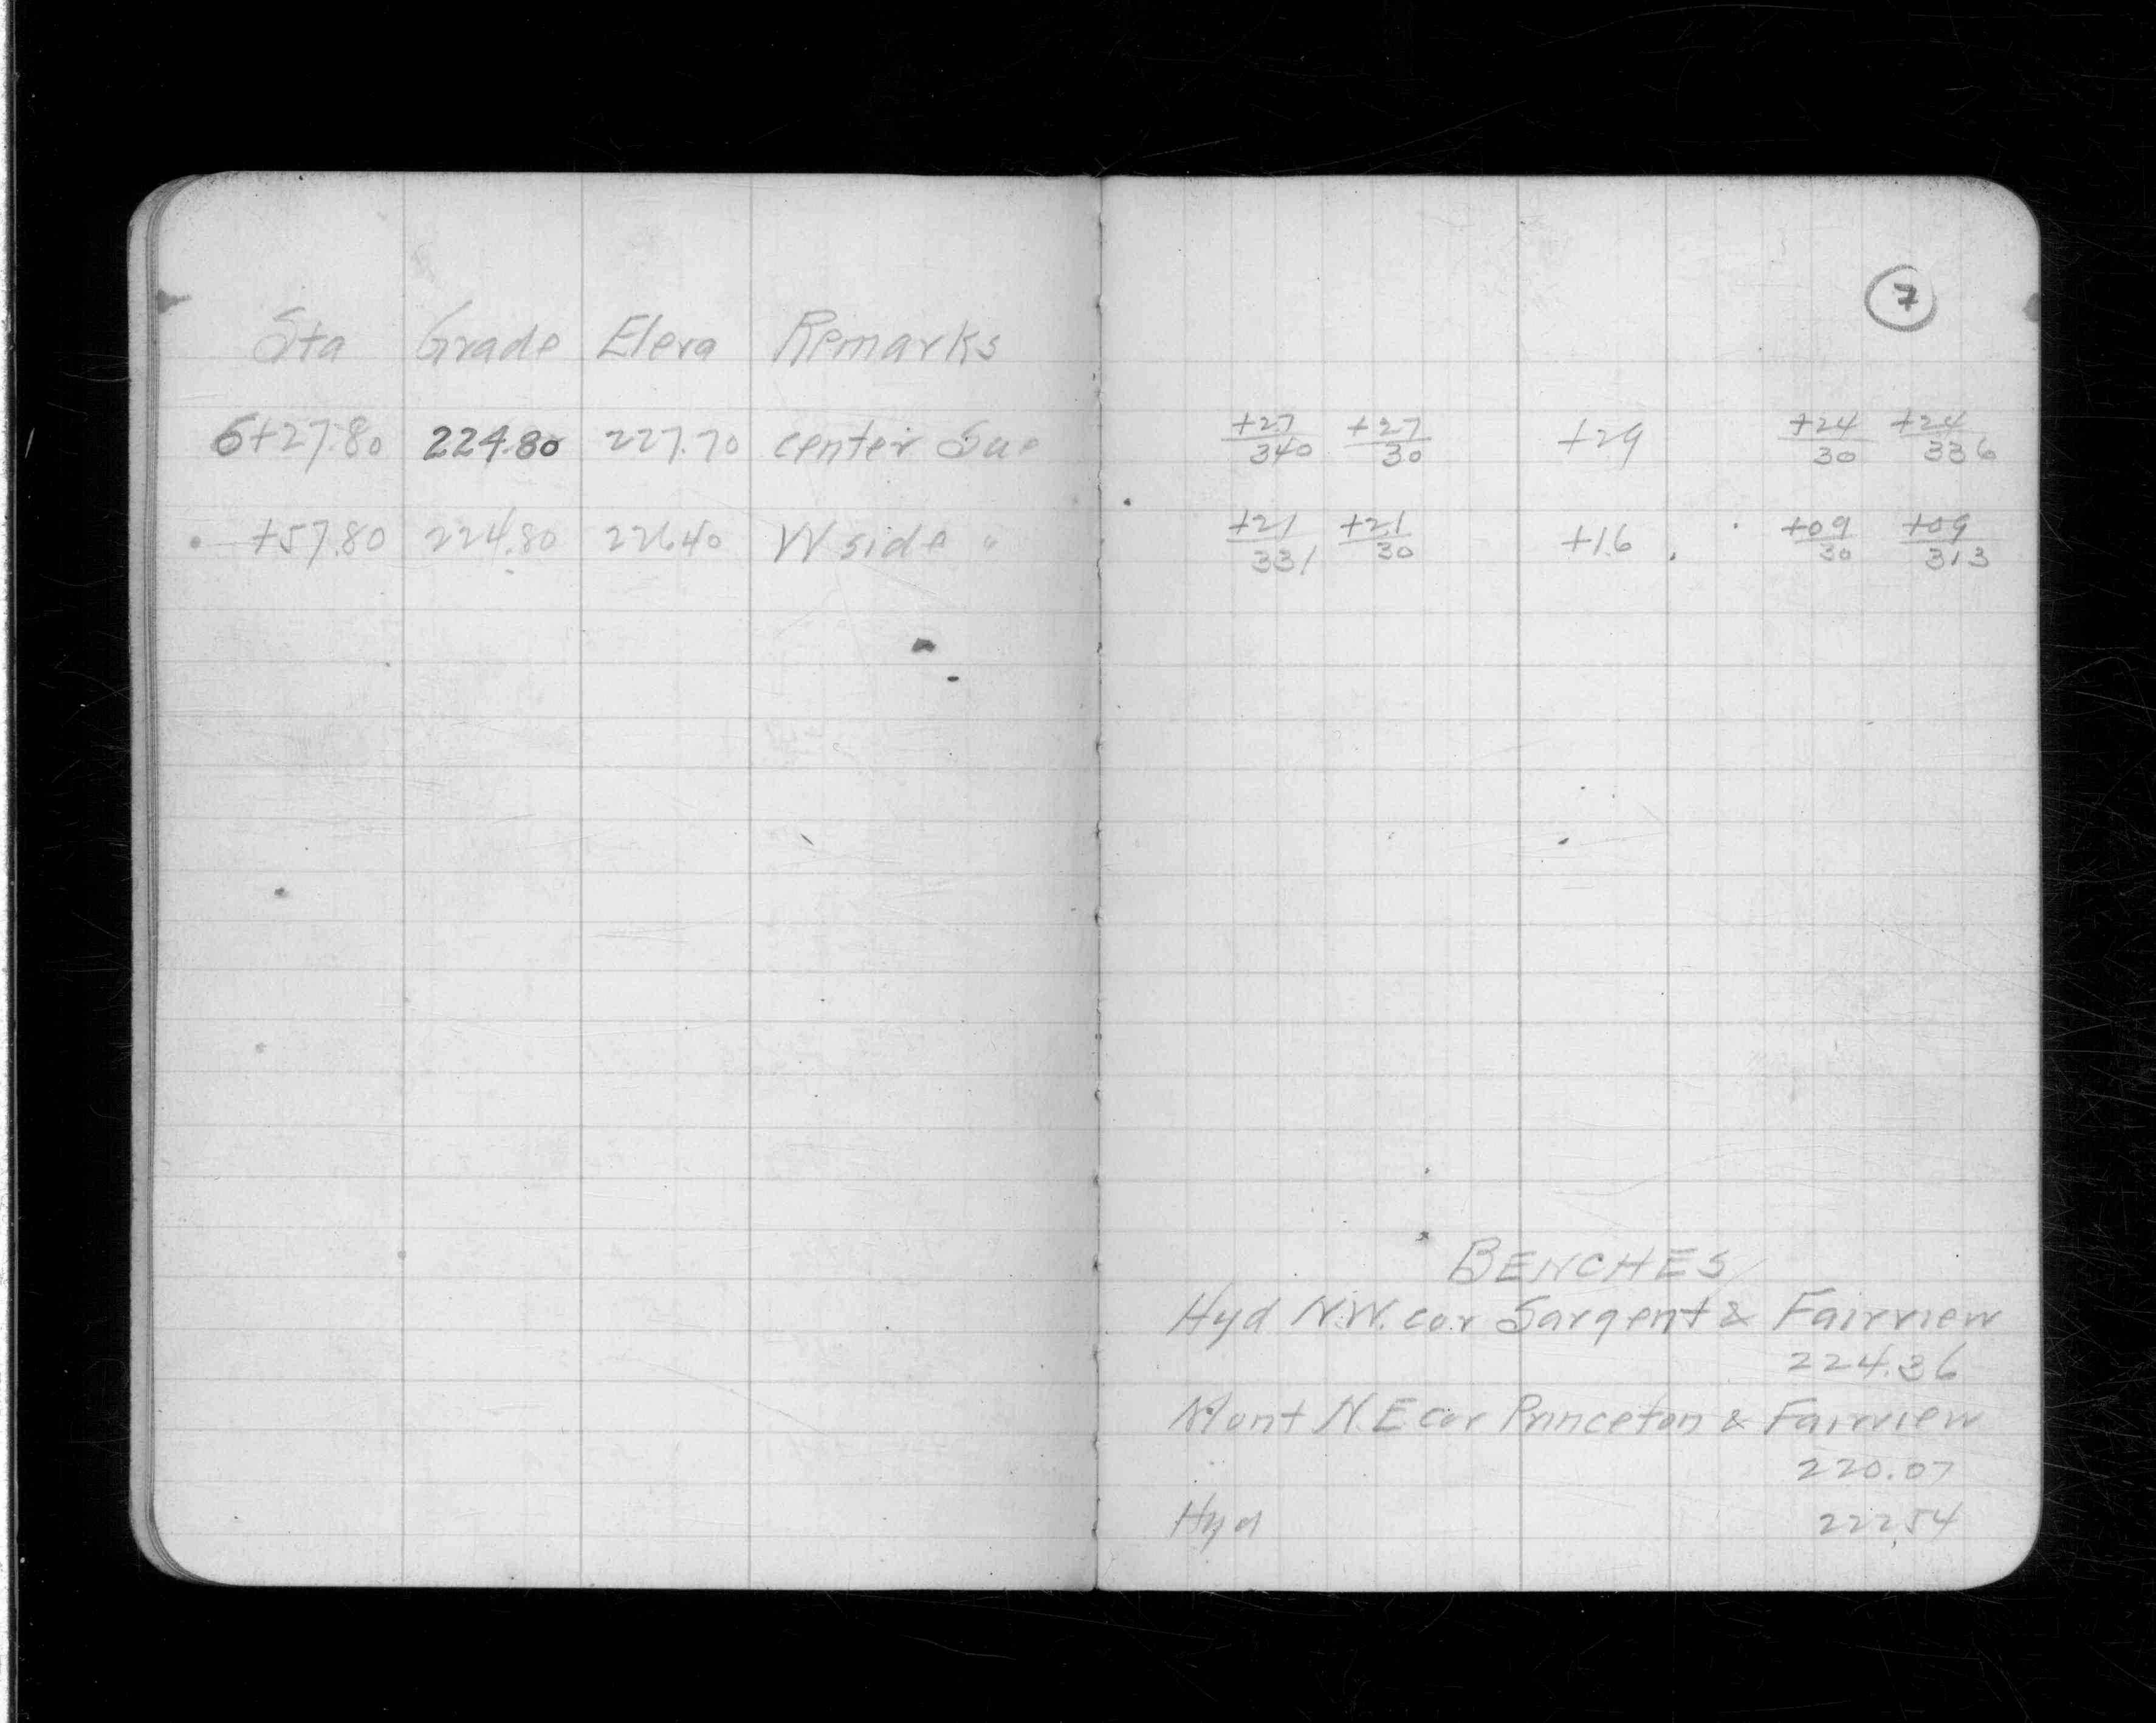 7
Sta Grade Eleva Remarks
6+27.80 224.80 227.70 center Sue +27/340 +27/30 +29 +24/30 +24/336
+57.80 224.80 226.40 W side " +21/331 +21/30 +1.6 +09/30 +09/313
BENCHES
Hyd N.W. cor Sargent & Fairview
224.36
Mont N.E cor Princeton & Fairview
220.07
Hyd 222.54